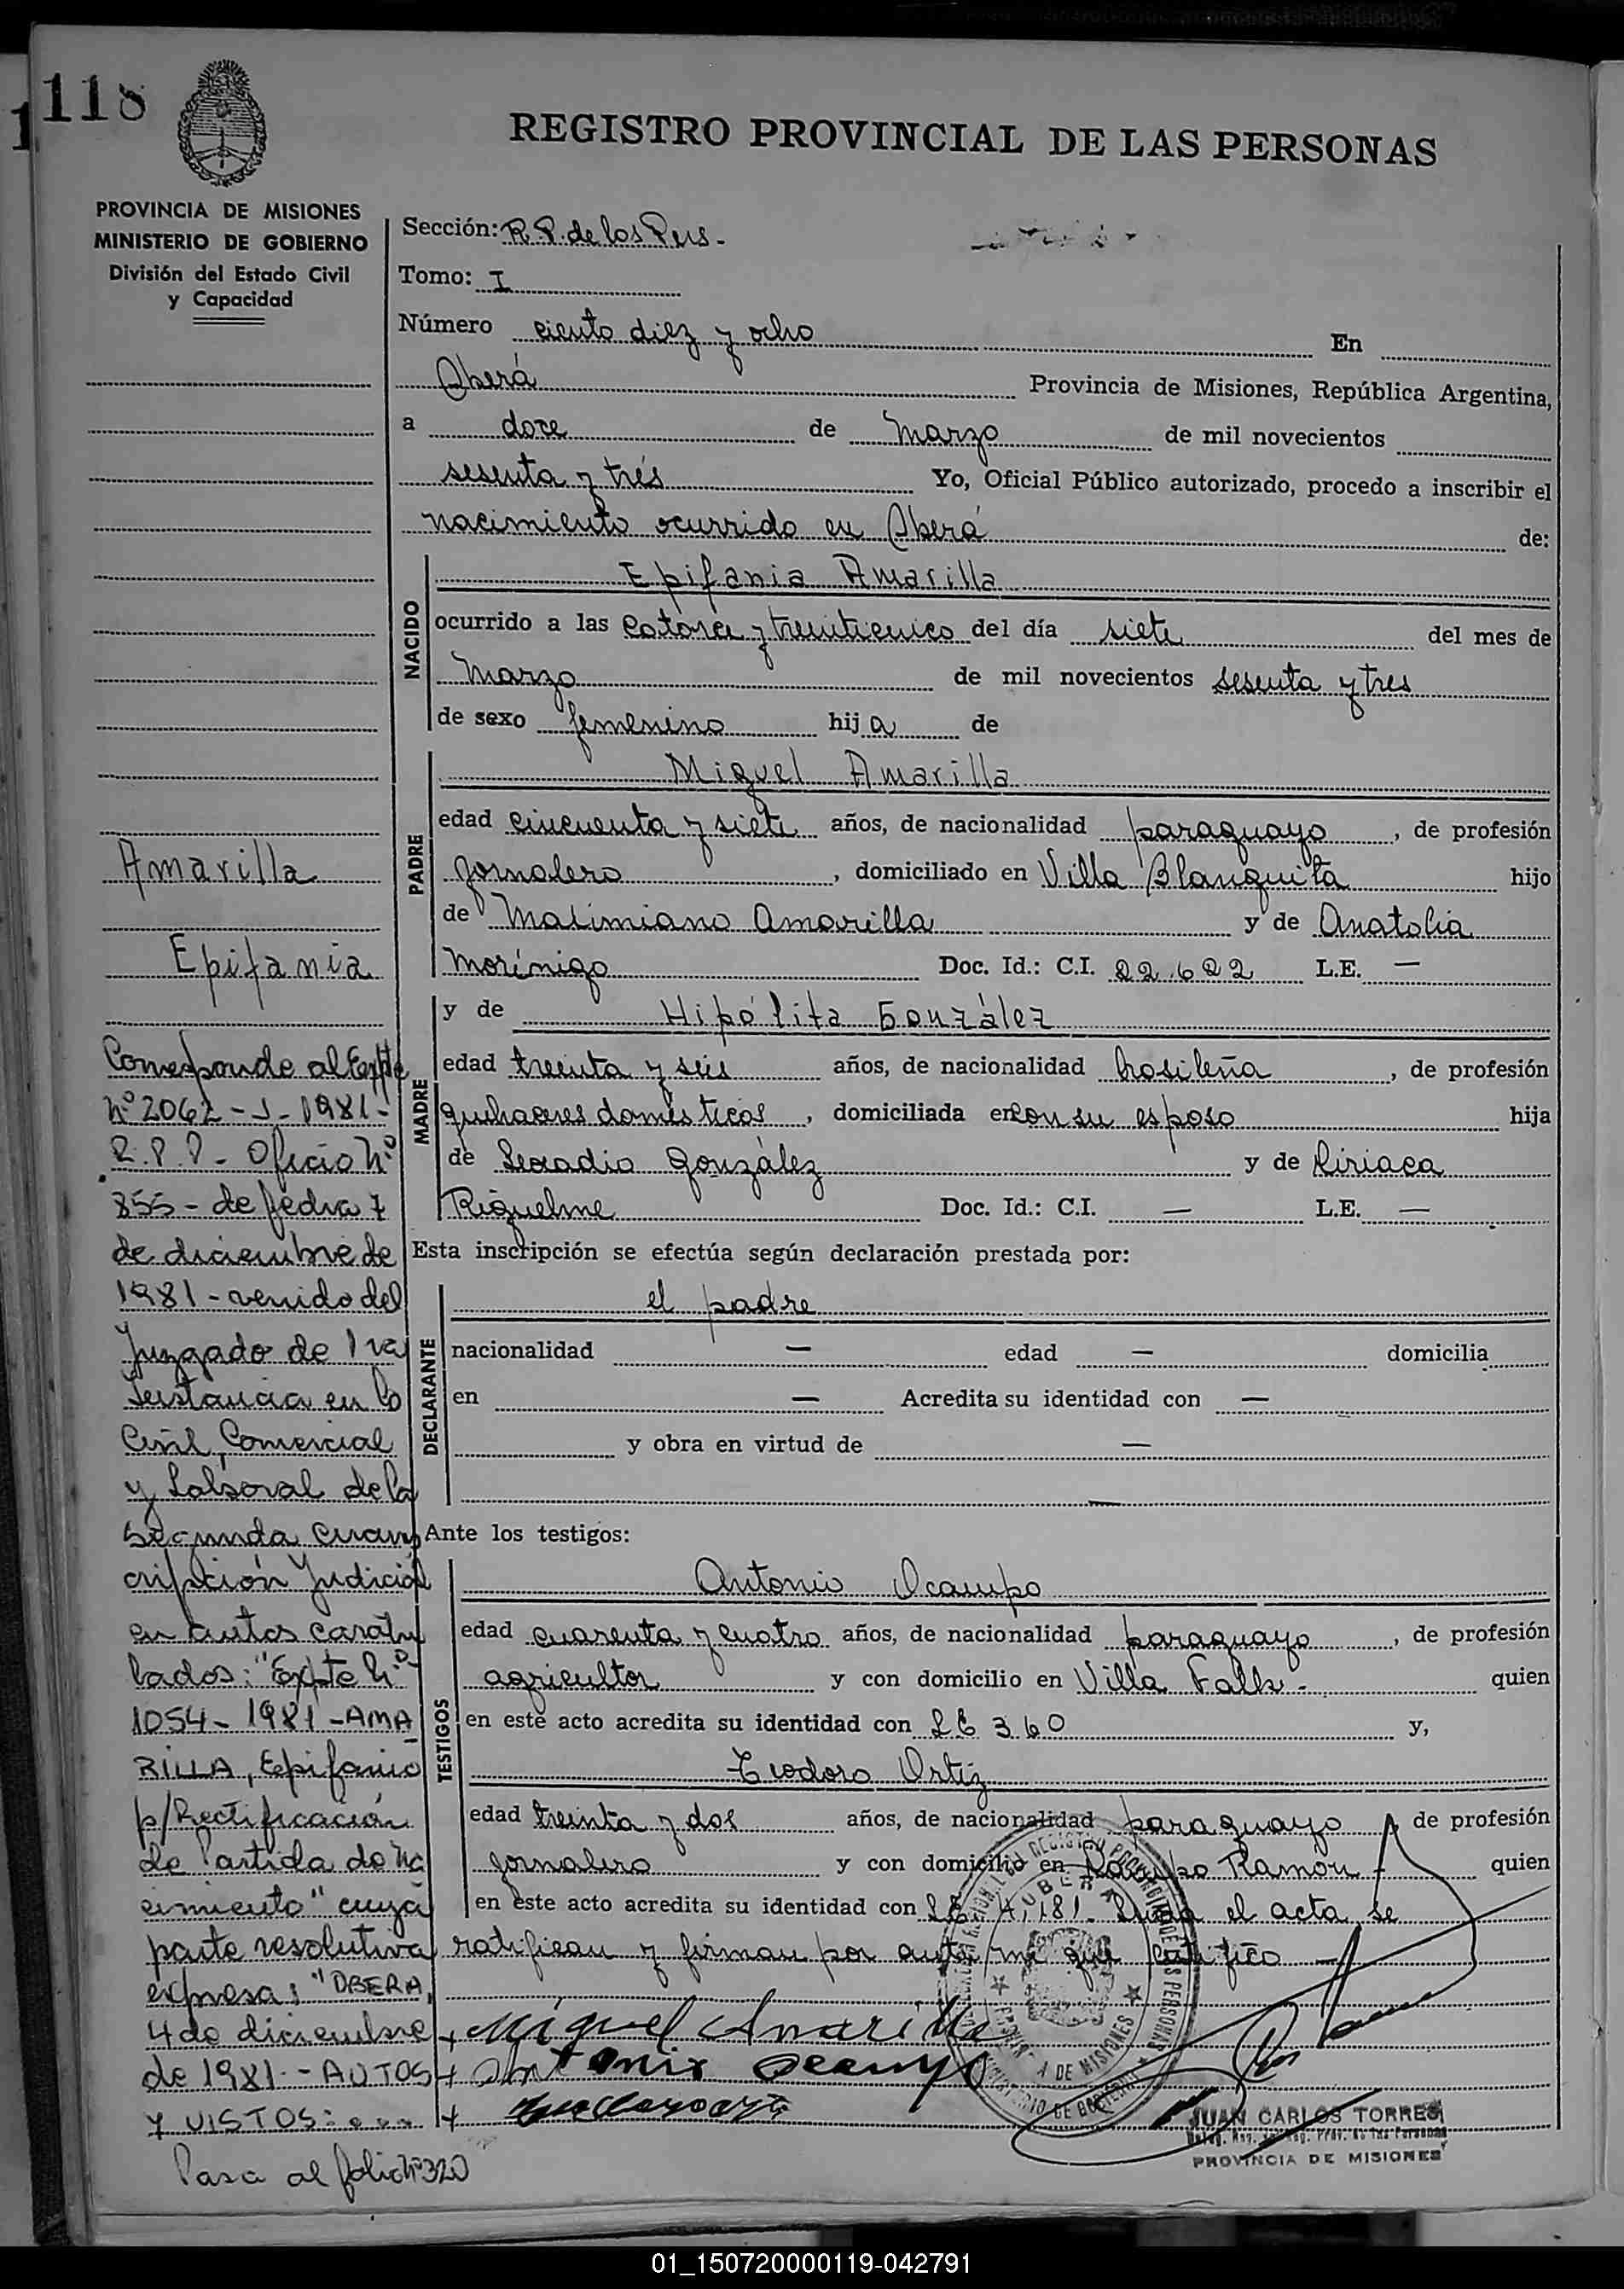 118
REGISTRO PROVINCIAL DE LAS PERSONAS
PROVINCIA DE MISIONES
MINISTERIO DE GOBIERNO
División del Estado Civil
y Capacidad
Sección: R. P. de las Pers.-
Tomo: I
Número ciento diez y ocho En
Oberá Provincia de Misiones, República Argentina,
a doce de Marzo de mil novecientos
sesenta y trés Yo, Oficial Público autorizado, procedo a inscribir el
nacimiento ocurrido en Oberá de:
NACIDO
Epifania Amarilla
ocurrido a las catorce y treinticinco del día siete del mes de
Marzo de mil novecientos sesenta y tres
de sexo femenino hija de
PADRE
Miguel Amarilla
edad cincuenta y siete años, de nacionalidad paraguayo, de profesión
jornalero, domiciliado en Villa Blanquita hijo
de Maximiano Amarilla y de Anatolia
Morínigo Doc. Id.: C.I. 22.622 L.E. —
MADRE
y de Hipólita González
edad treinta y seis años, de nacionalidad brasileña, de profesión
quehaceres domésticos, domiciliada en con su esposo hija
de Leocadio González y de Ciriaca
Riquelme Doc. Id.: C.I. — L.E. —
Esta inscripción se efectúa según declaración prestada por:
DECLARANTE
el padre
nacionalidad — edad — domicilia
en — Acredita su identidad con —
y obra en virtud de —
—
Ante los testigos:
TESTIGOS
Antonio Ocampo
edad cuarenta y cuatro años, de nacionalidad paraguayo, de profesión
agricultor y con domicilio en Villa Falk.- quien
en este acto acredita su identidad con 26360 y,
Teodoro Ortiz
edad treinta y dos años, de nacionalidad paraguayo, de profesión
jornalero y con domicilio en Campo Ramón.- quien
en este acto acredita su identidad con el acta, se
ratifican y firman por ante mi que certifico
+ Miguel Amarilla
+ Antonio Ocampo
+
JUAN CARLOS TORRES
PROVINCIA DE MISIONES
OBERA
Amarilla
Epifania
Corresponde al Expte
Nº 2062 - J - 1981 -
R.P.P - Oficio Nº
855 - de fecha 7
de diciembre de
1981 - venido del
Juzgado de 1ra
Instancia en lo
Civil, Comercial
y Laboral de la
Segunda Circuns
cripción Judicial
en autos caratu
lados: "Expte Nº
1054 - 1981 - AMA
RILLA, Epifanio
p/Rectificación
de Partida de Na
cimiento" cuya
parte resolutiva
expresa: "OBERA,
4 de diciembre
de 1981 - AUTOS
Y VISTOS: ...
Pasa al folio Nº 320
01_150720000119-042791